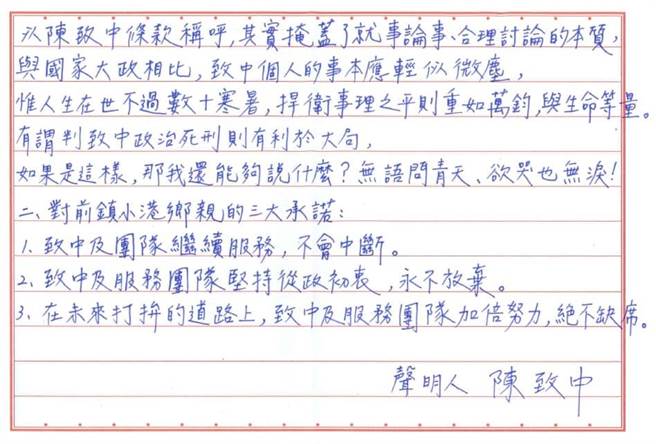 以陳致中條款稱呼，其實掩蓋了就事論事、合理討論的本質，
與國家大政相比，致中個人的事本應輕似微塵，
惟人生在世不過數十寒暑，捍衛事理之平則重如萬鈞，與生命等量。
有謂判致中政治死刑則有利於大局，
如果是這樣，那我還能夠説什麼？無語問青天、欲哭也無淚！
二、對前鎮小港鄉親的三大承諾：
1. 致中及團隊繼續服務，不會中斷。
2. 致中及服務團隊堅持從政初衷，永不放棄。
3. 在未來打拚的道路上，致中及服務團隊加倍努力，絕不缺席。
聲明人 陳致中